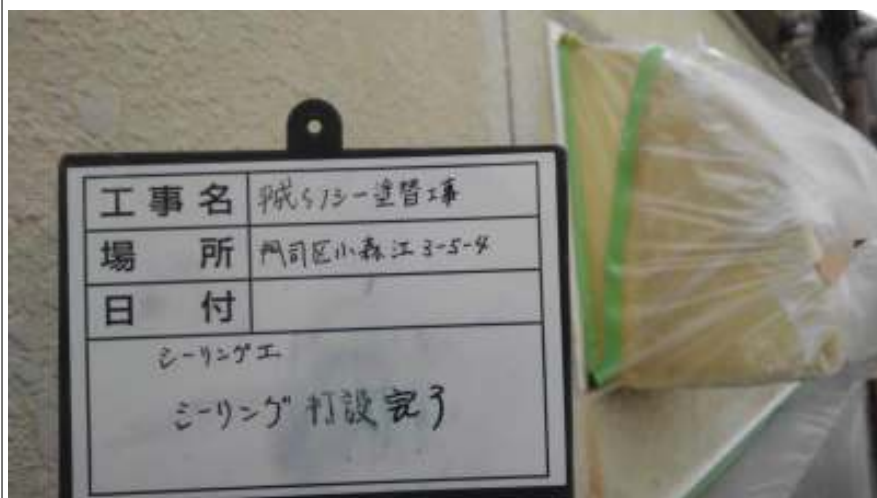 工事名 平成タクシー塗替工事
場所 門司区小森江3-5-4
日付
シーリング工
シーリング打設完了